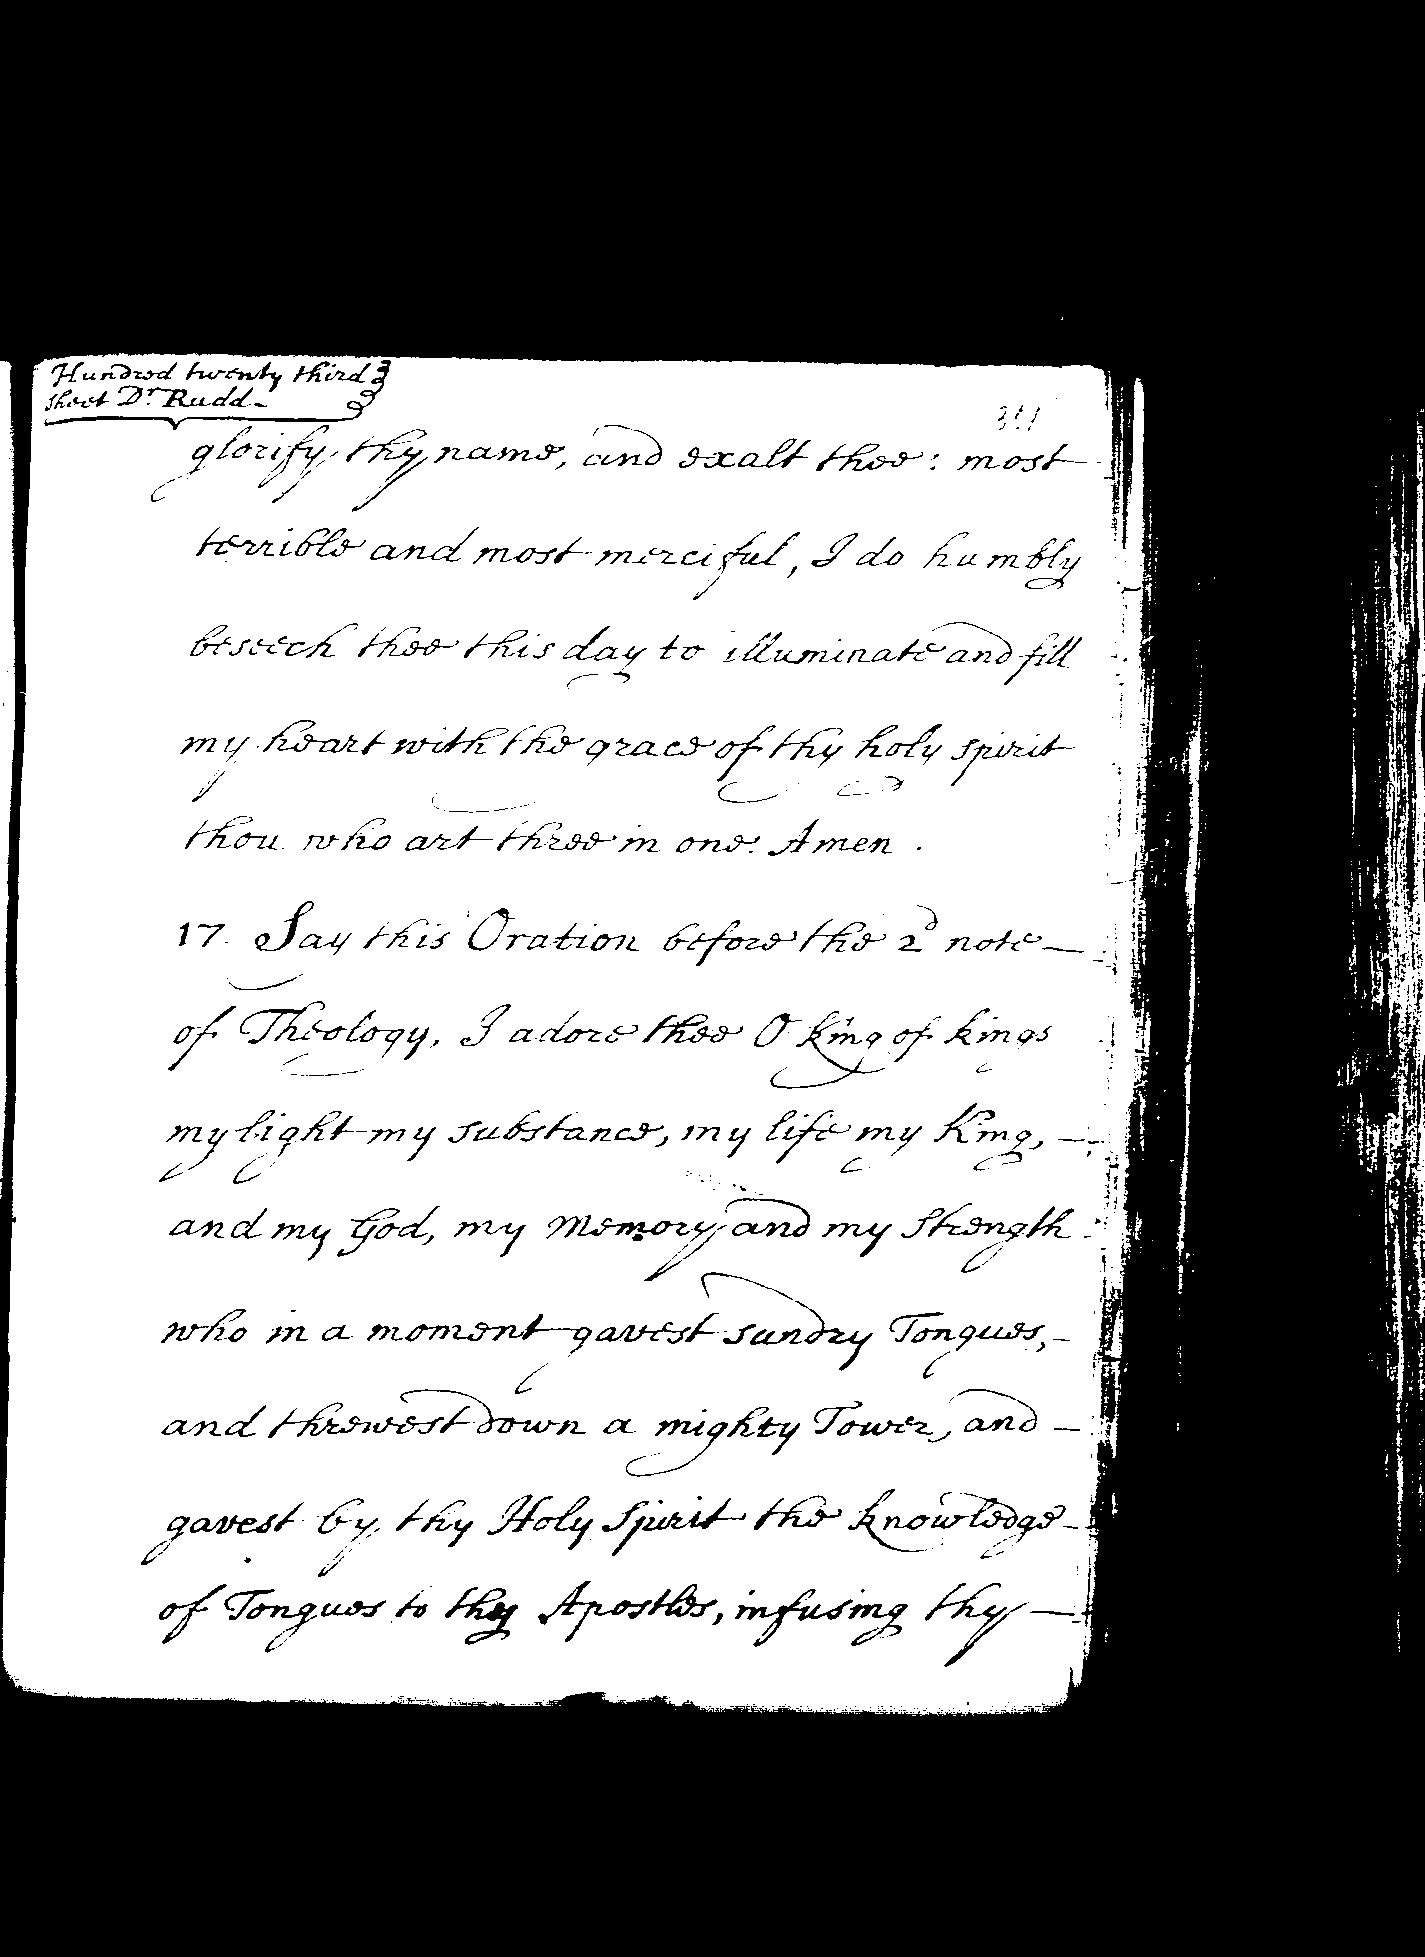 Hundred twenty third
sheet Dr. Rudd-
glorify thy name, and exalt thee: most
terrible and most merciful, I do humbly
beseech thee this day to illuminate and fill
my heart with the grace of thy holy spirit
thou who art three in one. Amen.
17. Say this Oration before the 2d note —
of Theology, I adore thee O King of kings
my light my substance, my life my King, —
and my God, my Memory and my Strength
who in a moment gavest sundry Tongues, —
and threwest down a mighty Tower, and —
gavest by thy Holy Spirit the knowledge —
of Tongues to thy Apostles, infusing thy —